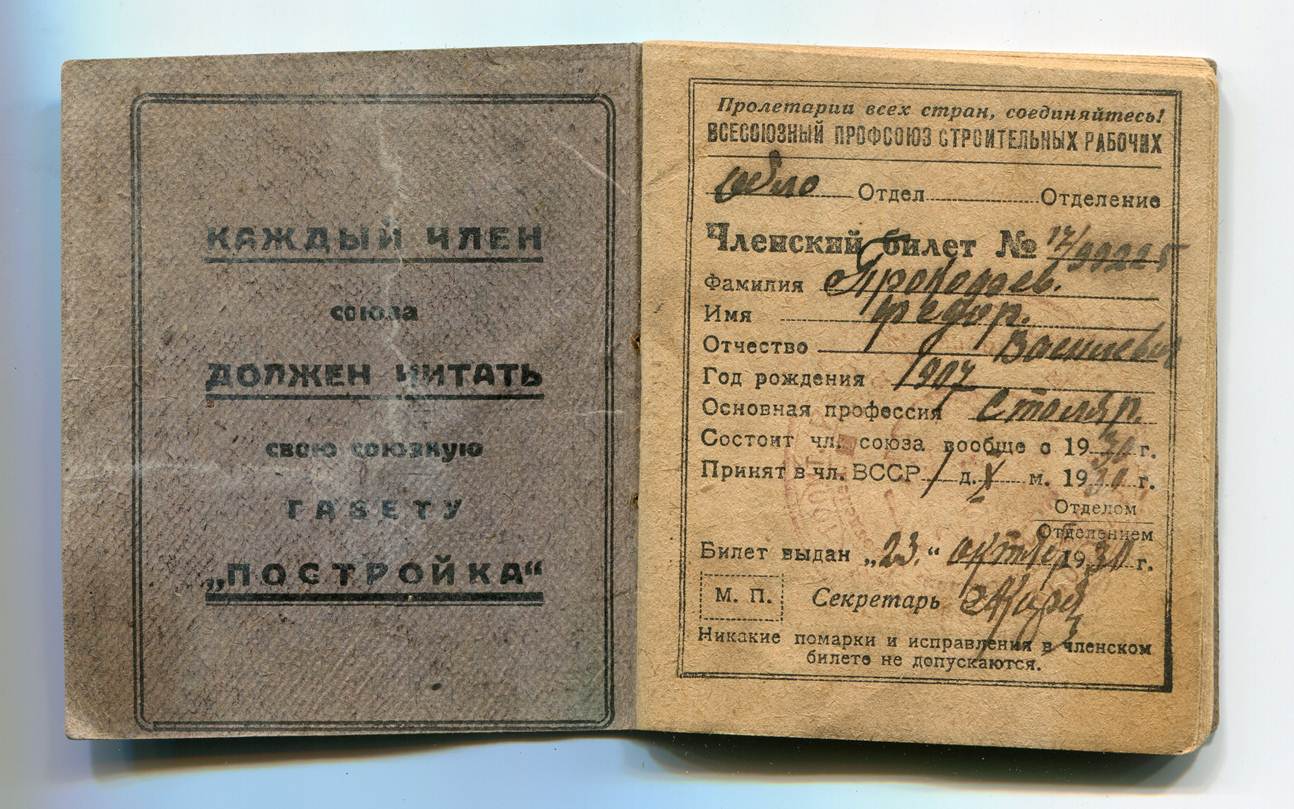 КАЖДЫЙ ЧЛЕН
союза
ДОЛЖЕН ЧИТАТЬ
свою союзную
ГАЗЕТУ
„ПОСТРОЙКА“
Пролетарии всех стран, соединяйтесь!
ВСЕСОЮЗНЫЙ ПРОФСОЮЗ СТРОИТЕЛЬНЫХ РАБОЧИХ
Отдел Отделение
Членский билет № 17/99225
Фамилия
Имя Федор.
Отчество Васильевич
Год рождения 1907
Основная профессия Столяр.
Состоит чл. союза вообще с 1930 г.
Принят в чл. ВССР 1 д. X м. 1930 г.
Отделом
Отделением
Билет выдан „23“ октбр 1930 г.
М. П. Секретарь
Никакие помарки и исправления в членском
билете не допускаются.